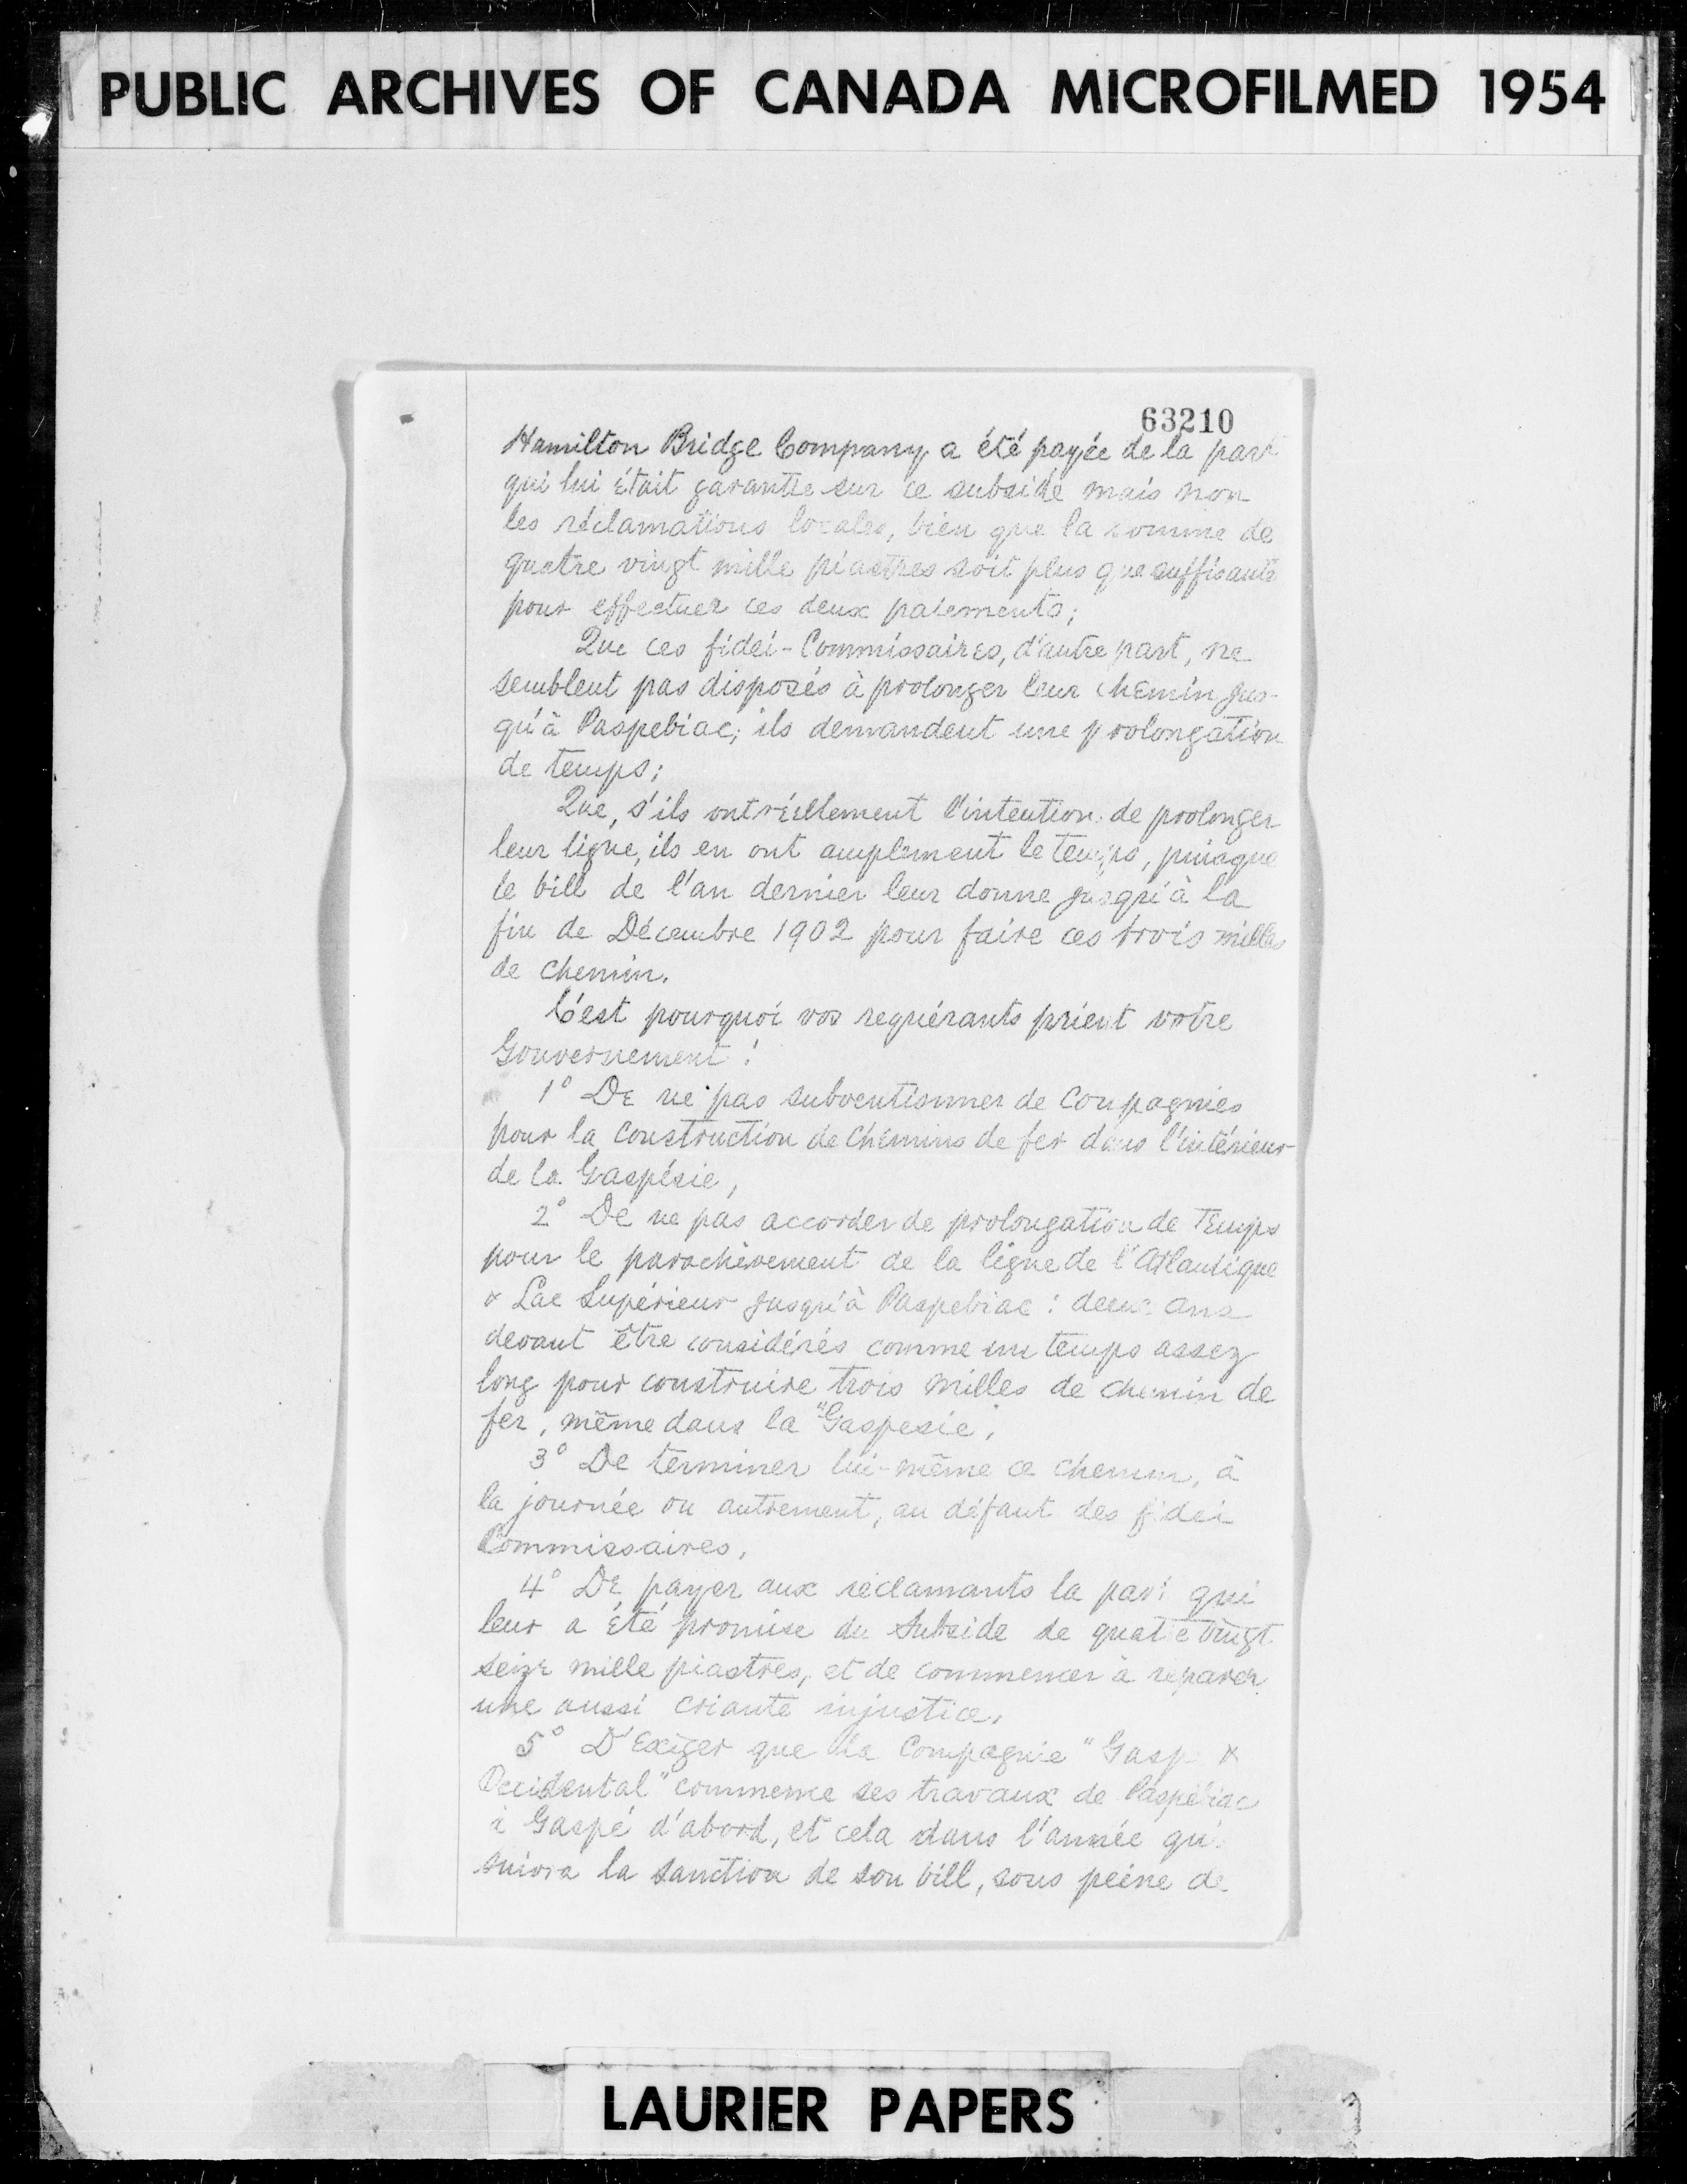 PUBLIC ARCHIVES OF CANADA MICROFILMED 1954
63210
Hamilton Bridge Company a été payée de la part
qui lui était garantie sur ce subside mais non
les réclamations locales, bien que la somme de
quatre vingt mille piastres soit plus que suffisante
pour effectuer ces deux paiements;
Que ces fidéi-Commissaires, d'autre part, ne
semblent pas disposés à prolonger leur chemin jus-
qu'à Paspebiac; ils demandent une prolongation
de temps;
Que, s'ils ont réellement l'intention de prolonger
leur ligne, ils en ont amplement le temps, puisque
le bill de l'an dernier leur donne jusqu'à la
fin de Décembre 1902 pour faire ces trois milles
de chemin.
C'est pourquoi vos requérants prient votre
Gouvernement:
1° De ne pas subventionner de Compagnies
pour la construction de chemins de fer dans l'intérieur
de la Gaspésie,
2° De ne pas accorder de prolongation de Temps
pour le parachèvement de la ligne de l'Atlantique
& Lac Supérieur jusqu'à Paspebiac: deux ans
devant être considérés comme un temps assez
long pour construire trois milles de chemin de
fer, même dans la "Gaspesie,
3° De terminer lui-même ce chemin, à
la journée ou autrement, au défaut des fidéi
Commissaires,
4° De payer aux réclamants la part qui
leur a été promise du Subside de quatre vingt
seize mille piastres, et de commencer à réparer
une aussi criante injustice.
5° D'Exiger que la Compagnie "Gasp &
Occidental" commence ses travaux de Paspébiac
à Gaspé d'abord, et cela dans l'année qui
suivra la sanction de son bill, sous peine de
LAURIER PAPERS